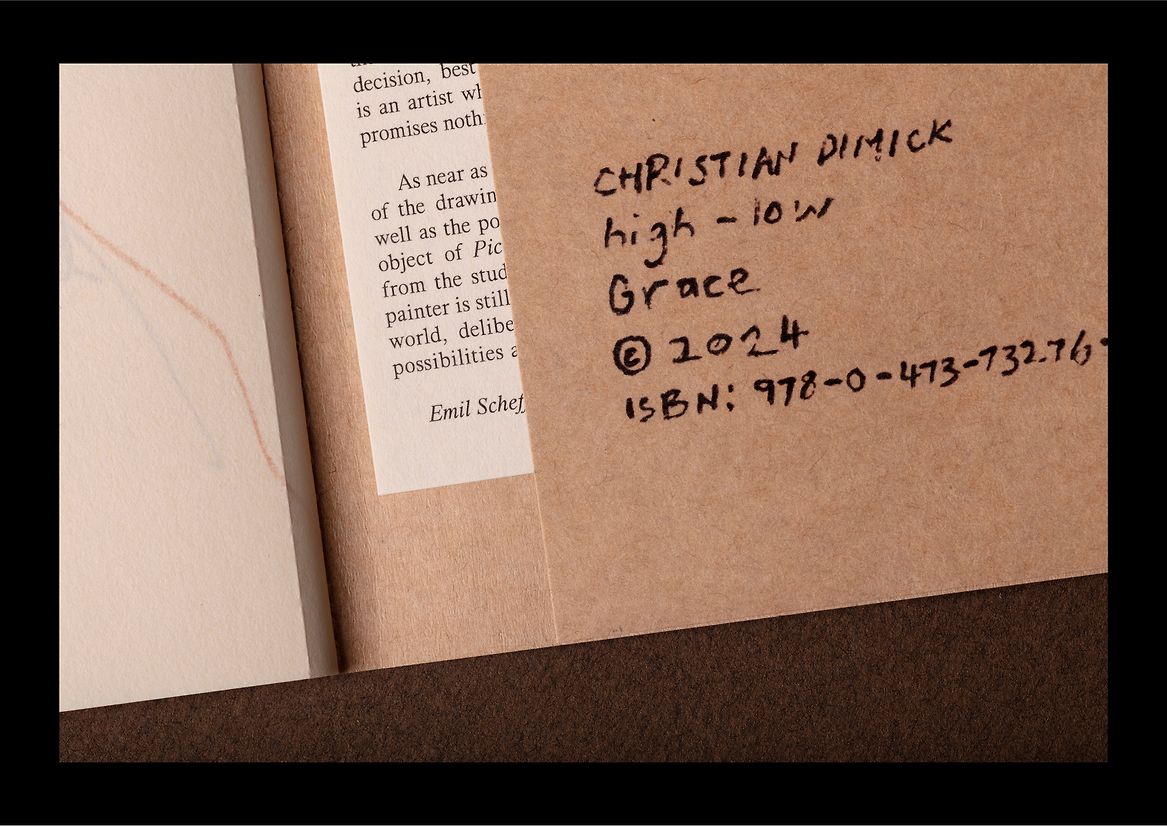 decision, best
is an artist wh
promises noth
As near as
of the drawin
well as the po
object of Pic
from the stud
painter is still
world, delibe
possibilities a
Emil Schef
CHRISTIAN DIMICK
high - low
Grace
© 2024
ISBN: 978-0-473-73276-